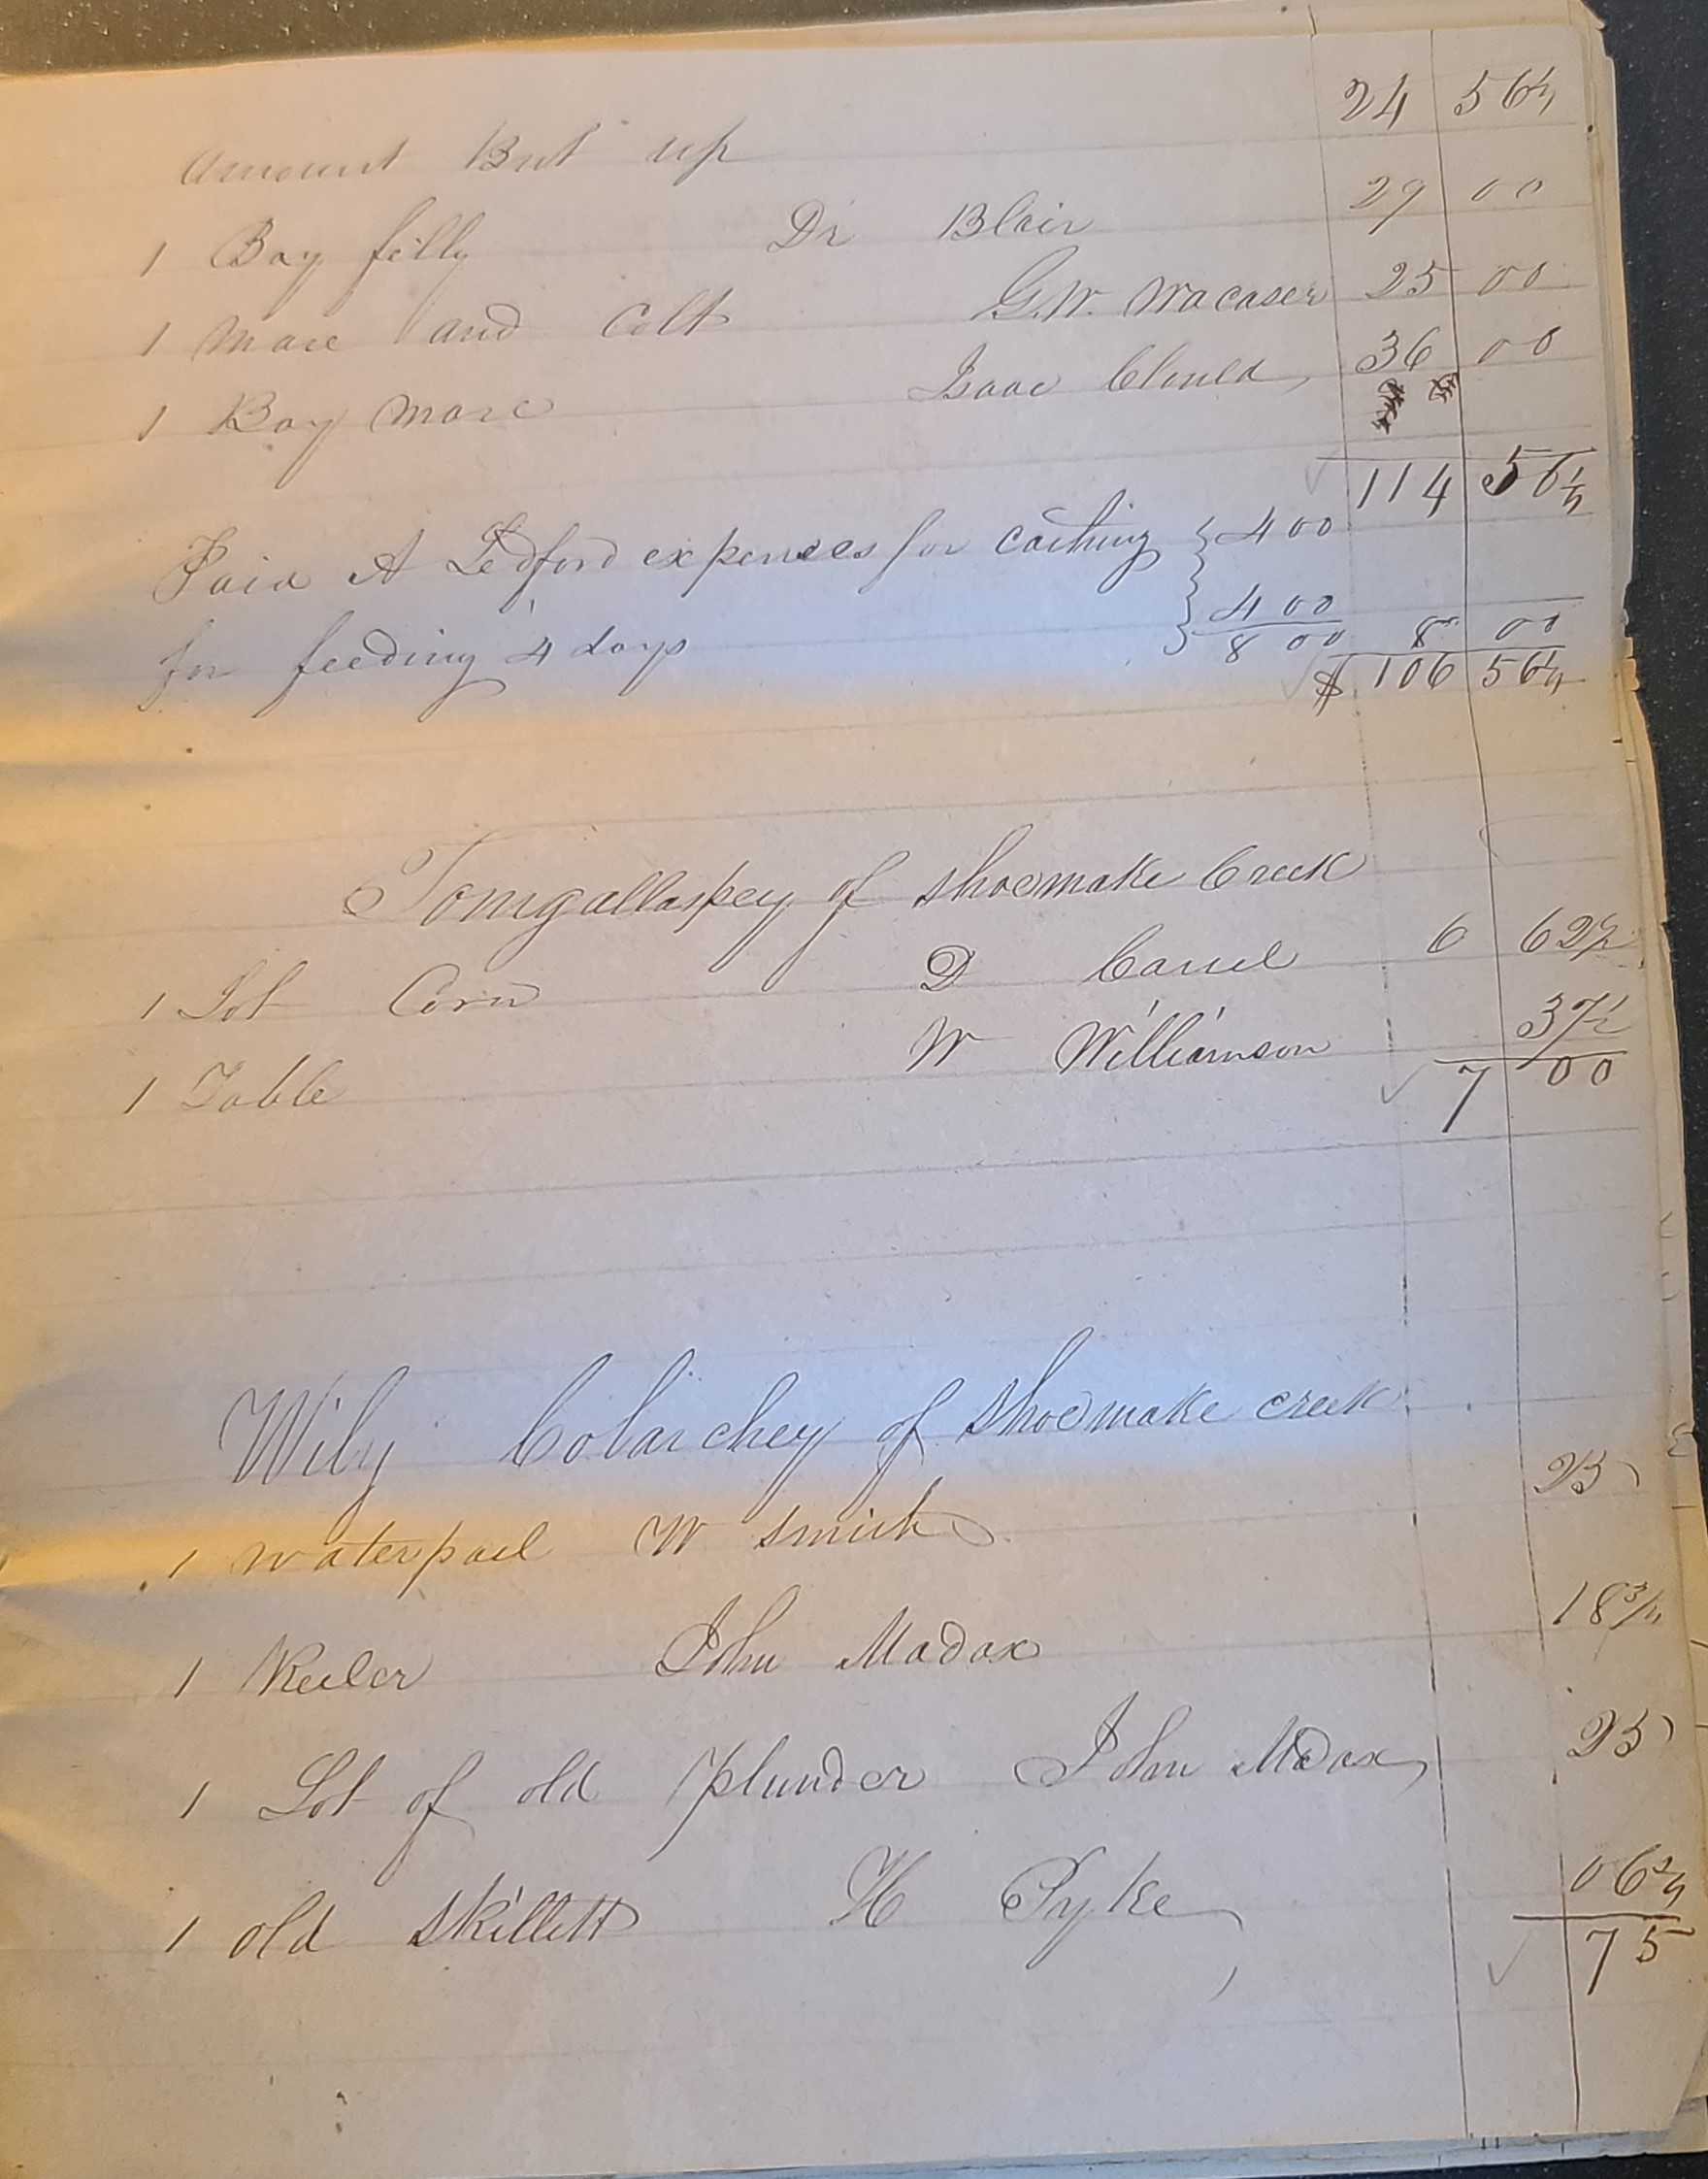 Amount But up 24 56¼
1 Bay filly Dr Blair 29 00
1 mare and Colt G.W. Wacaser 25 00
1 Bay mare Isaac Clould 36 00
114 56¼
Paid A Ledford expenses for caching } 4 00
for feeding 4 days } 4 00
8 00 8 00
$ 106 56¼
Tomgallaspey of shoemake Creek
1 Lot Corn D Carrel 6 62½
1 Table W Williamson 37½
7 00
Wily Colarchey of shoemake creek
1 waterpail W smith 25
1 Keeler John Madox 18¾
1 Lot of old plunder John Madox 25
1 old skillett H Pyke 06¼
75